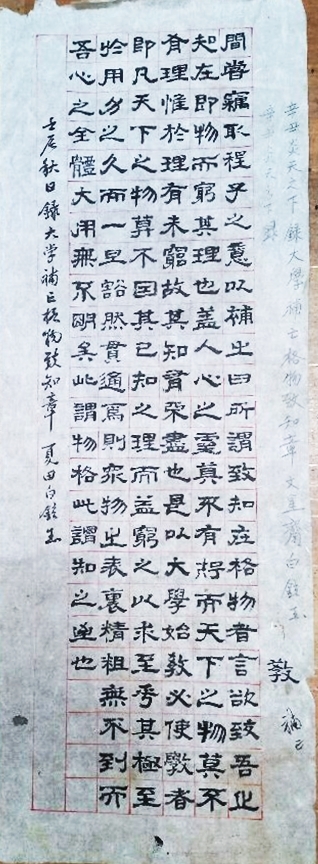 辛丑炎天之下 錄大學補亡格物致知章 文星齋 白鉉玉
敎
補亡
間嘗竊取程子之意以補之曰所謂致知在格物者言欲致吾之
知在即物而窮其理也盖人心之靈莫不有知而天下之物莫不
有理惟於理有未窮故其知有不盡也是以大學始敎必使學者
即凡天下之物莫不因其已知之理而益窮之以求至乎其極至
於用力之久而一旦豁然貫通焉則衆物之表裏精粗無不到而
吾心之全體大用無不明矣此謂物格此謂知之至也
壬辰秋日錄大学補亡格物致知章 夏田白鉉玉